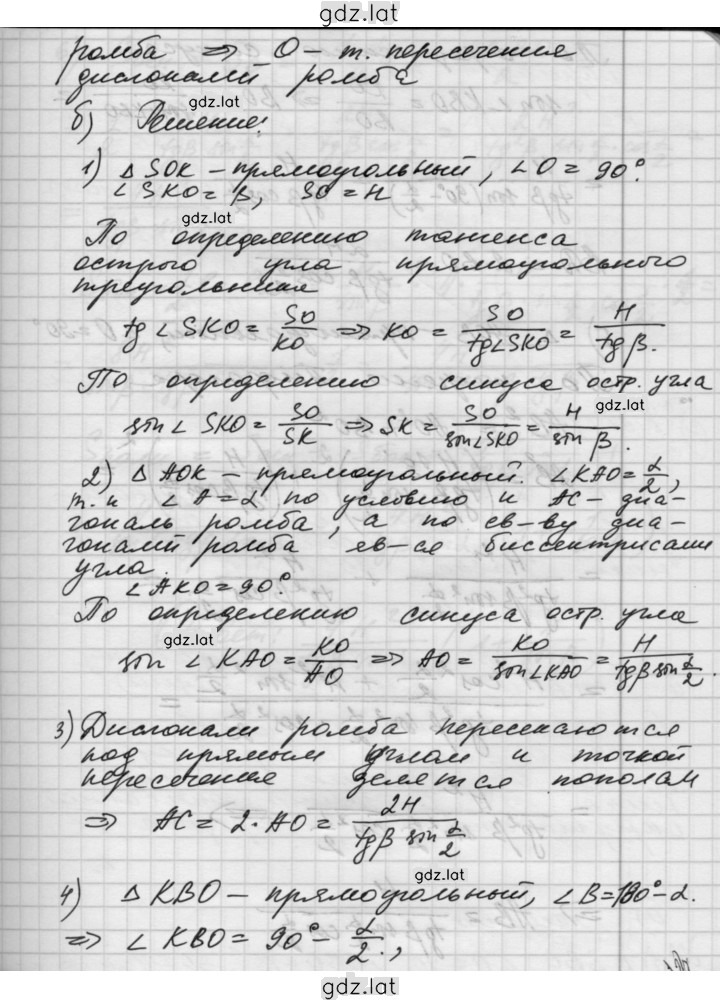 gdz.lat
ромба ⇒ O – т. пересечения
диагоналей ромба
gdz.lat
б) Решение:
1) △SOK – прямоугольный, ∠O = 90°.
∠SKO = β, SO = H
gdz.lat
По определению тангенса
острого угла прямоугольного
треугольника
tg∠SKO = SO/KO ⇒ KO = SO/tg∠SKO = H/tgβ.
По определению синуса остр. угла
gdz.lat
sin∠SKO = SO/SK ⇒ SK = SO/sin∠SKO = H/sin β.
2) △AOK – прямоугольный. ∠KAO = α/2,
gdz.lat
т.к ∠A = α по условию и AC – диа-
гональ ромба, а по св-ву диа-
гоналей ромба яв-ся биссектрисами
угла.
∠AKO = 90°.
По определению синуса остр. угла
gdz.lat
sin ∠KAO = KO/AO ⇒ AO = KO/sin∠KAO = H/tgβ sin α/2.
3) Диагонали ромба пересекаются
под прямым углом и точкой
пересечения делятся пополам
⇒ AC = 2·AO = 2H/tgβ sin α/2
gdz.lat
4) △KBO – прямоугольный, ∠B = 180° – α.
⇒ ∠KBO = 90° – α/2.,
gdz.lat